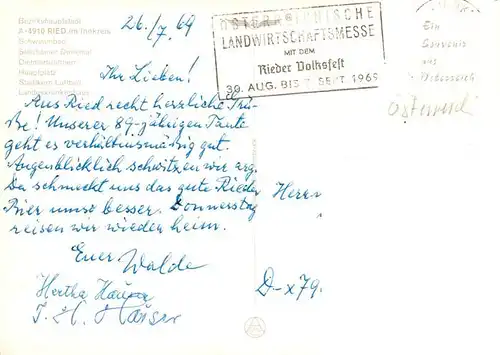 Bezirkshauptstadt
A-4910 RIED im Innkreis
Schwimmbad
Schwanthaler Denkmal
Dietmarbrunnen
Hauptplatz
Stadtkern Luftbild
26./7. 69
ÖSTERREICHISCHE
LANDWIRTSCHAFTSMESSE
MIT DEM
Rieder Volksfest
30. AUG. BIS 7. SEPT 1969
Ein
Souvenir
aus
Österreich
Österreich
Ihr Lieben!
Aus Ried recht herzliche Grü-
ße! Unserer 89-jährigen Tante
geht es verhältnismäßig gut.
Augenblicklich schwitzen wir arg.
Da schmeckt uns das gute Rieder
Bier umso besser. Donnerstag
reisen wir wieder heim.
Euer Walde
Hertha
Herrn
D-x79.